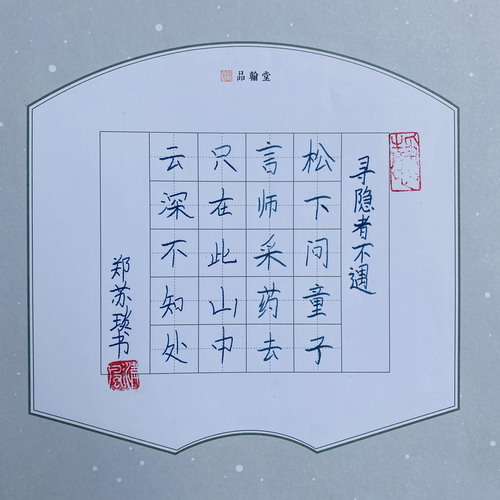 品翰堂
寻隐者不遇
松下问童子
言师采药去
只在此山中
云深不知处
郑苏琰书